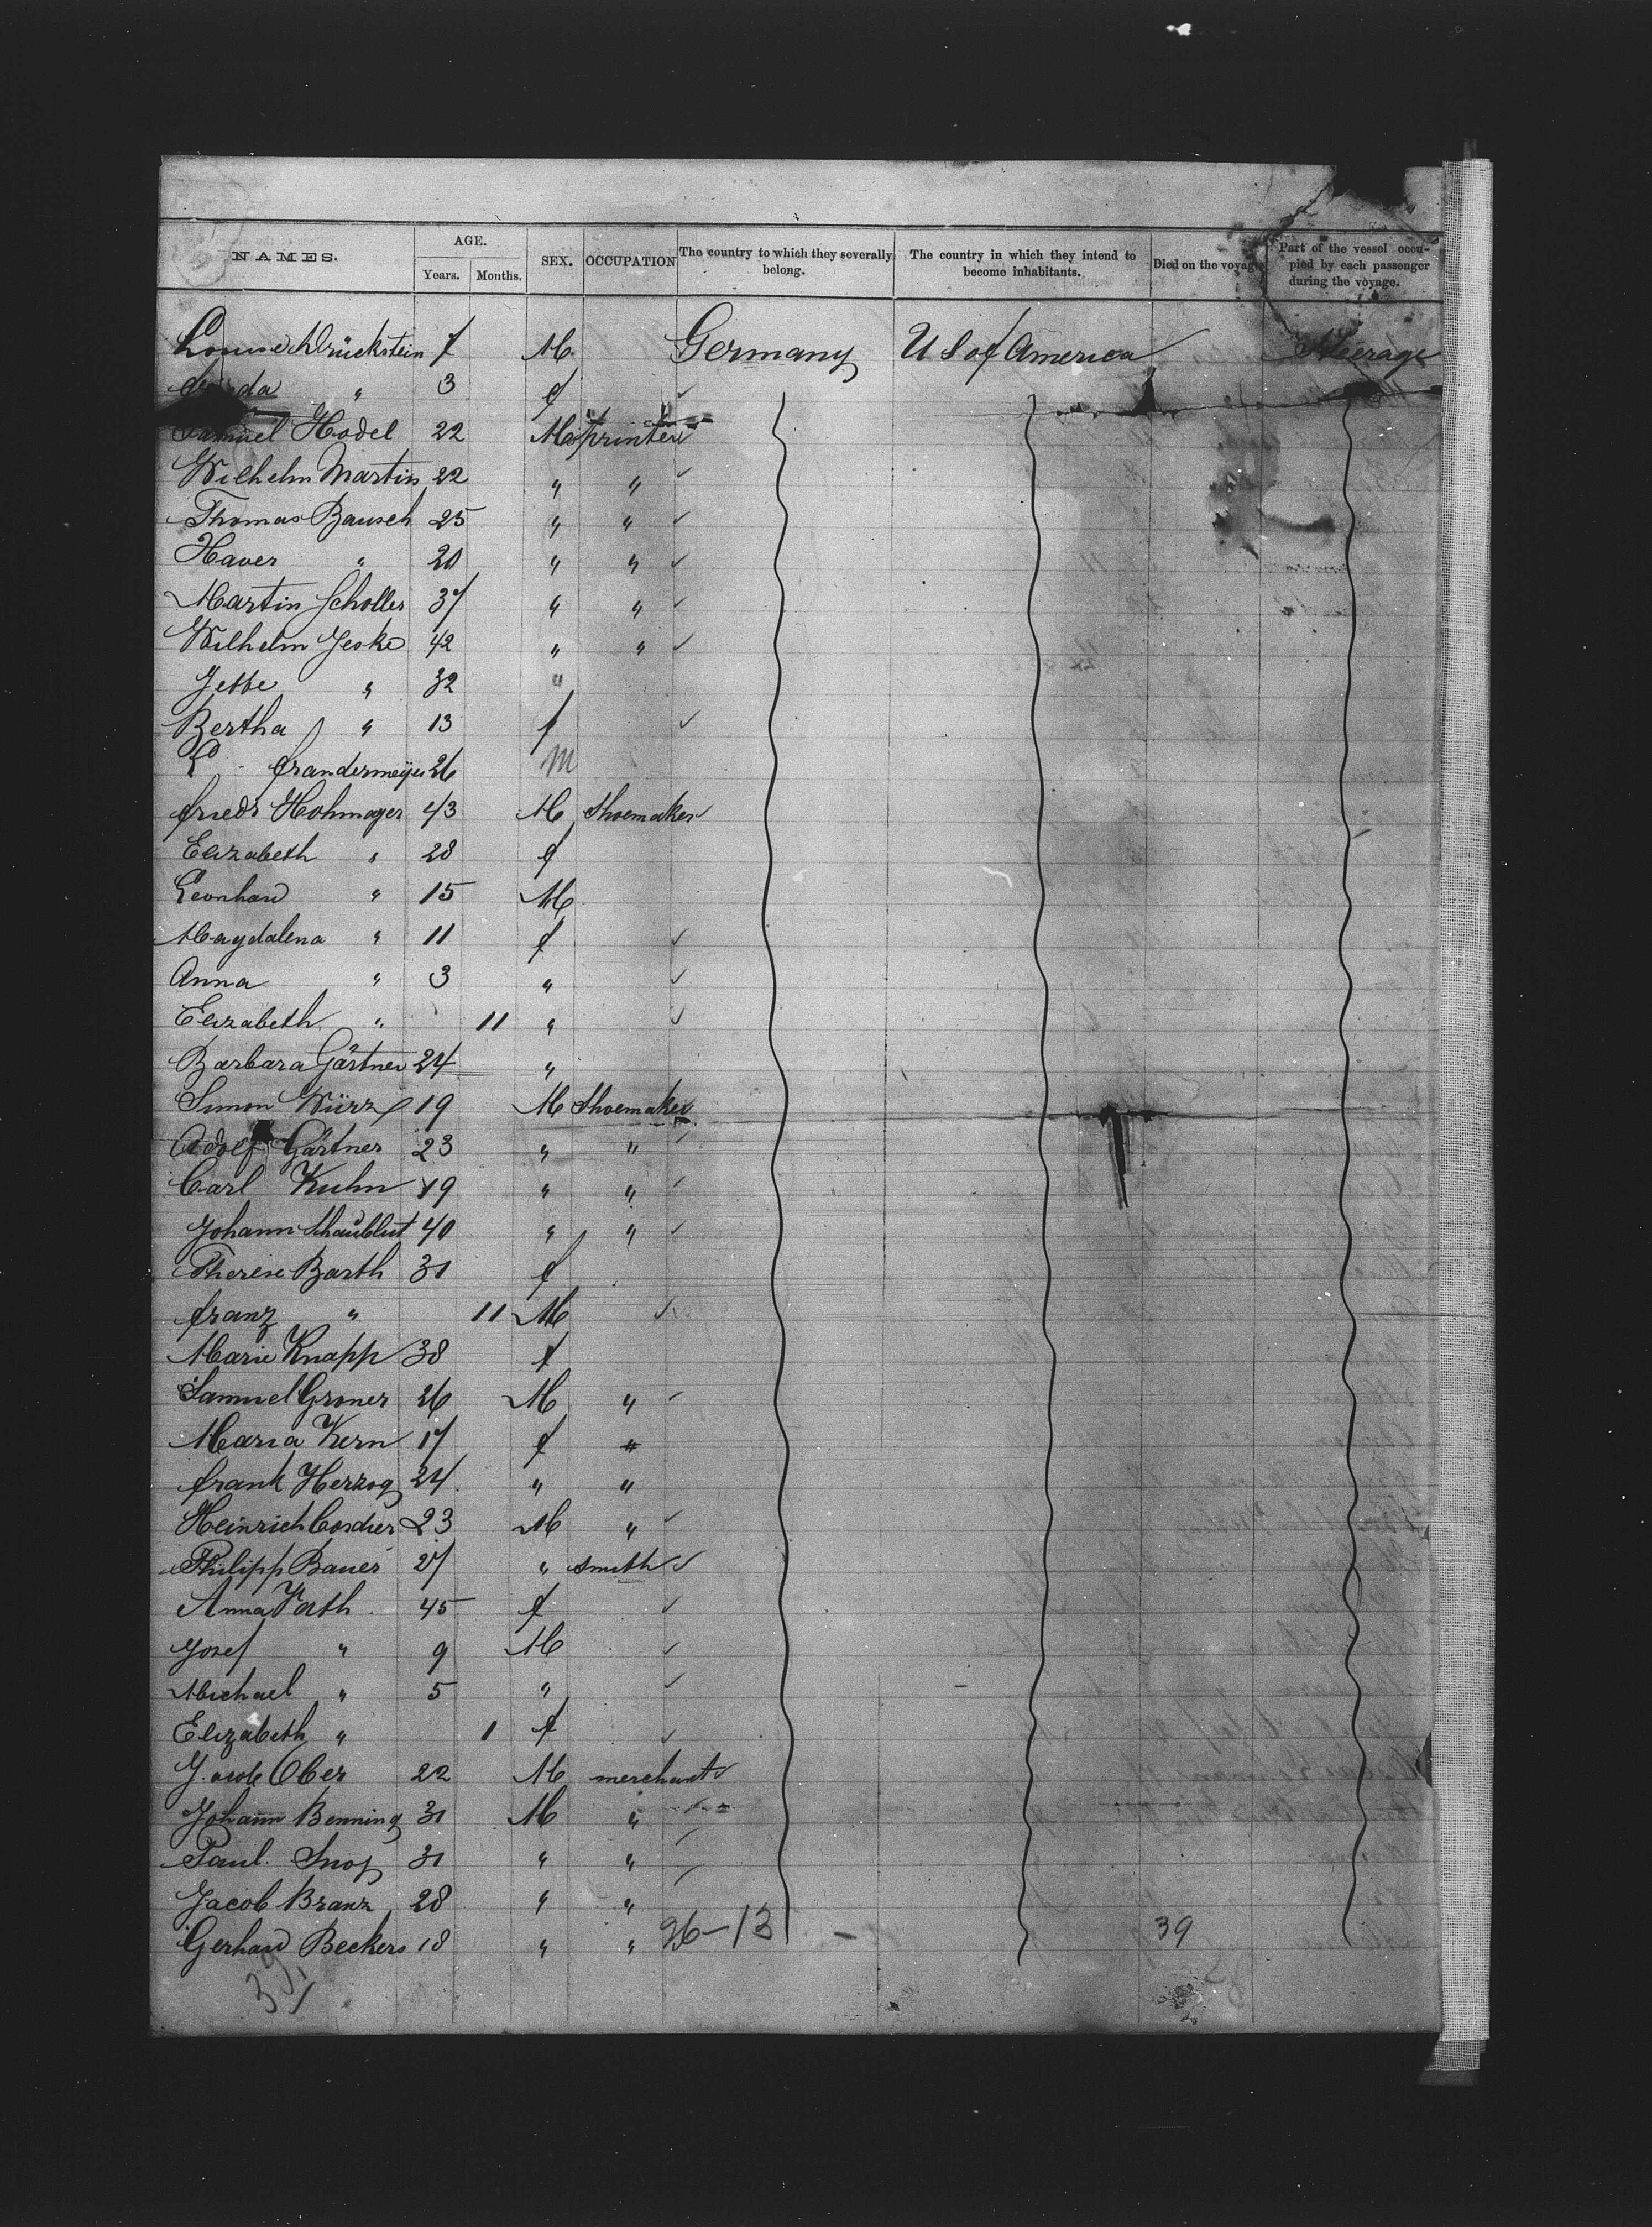 NAMES. AGE. Years. Months. SEX. OCCUPATION The country to which they severally belong. The country in which they intend to become inhabitants. Died on the voyage Part of the vessel occupied by each passenger during the voyage.
Louise Drückstein 7 M Germany U S of America Steerage
" 3 f
Samuel Hodel 22 M printer
Wilhelm Martin 22 " "
Thomas Bausch 25 " "
Xaver " 20 " "
Martin Scholler 37 " "
Wilhelm Jeske 42 " "
Jette " 32 "
Bertha " 13 f
L frandermeyer 26 M
friedr Hohmayer 43 M Shoemaker
Elizabeth " 28 f
Leonhard " 15 M
Magdalena " 11 f
Anna " 3 "
Elizabeth " 11 "
Barbara Gärtner 24 "
Simon Würz 19 M Shoemaker
Adolf Gärtner 23 " "
Carl Kuhn 19 " "
Johann Schaüblut 40 " "
Therese Barth 31 f
franz " 11 M
Marie Knapp 38 f
Samuel Groner 26 M "
Maria Kern 17 f "
frank Herzog 24 " "
Heinrich 23 M "
Philipp Bauer 27 " smith
Anna Fath 45 f
Josef " 9 M
Michael " 5 "
Elizabeth " 1 f
Jacob Ober 22 M merchant
Johann Benning 31 M "
Paul Snop 31 " "
Jacob Branz 28 " "
Gerhard Beckers 18 " " 26-13 - 39
39